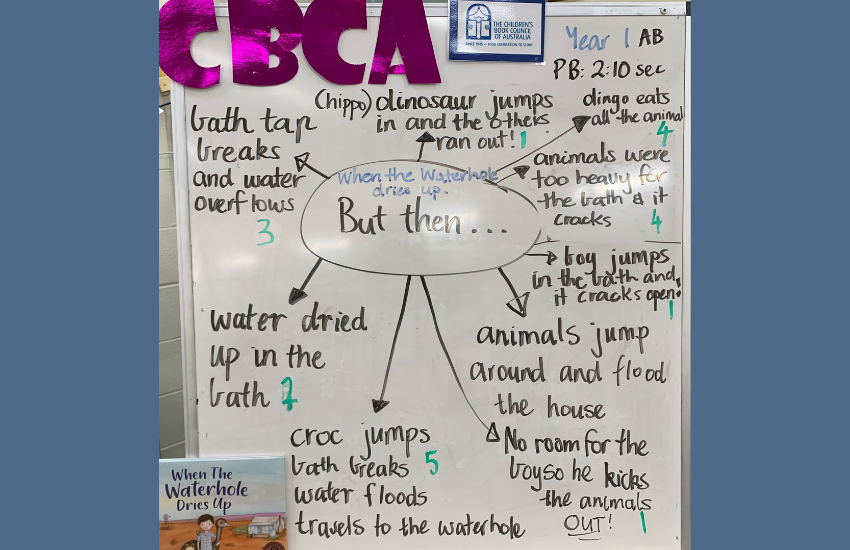 CBCA
THE CHILDREN'S
BOOK COUNCIL
OF AUSTRALIA
Year 1 AB
PB: 2:10 sec
(hippo) dinosaur jumps
in and the others
ran out! 1
dingo eats
all the animal
4
bath tap
breaks
and water
overflows
3
animals were
too heavy for
the bath & it
cracks 4
When the Waterhole
dries up.
But then...
boy jumps
in the bath and
it cracks open.
1
water dried
up in the
bath
animals jump
around and flood
the house
croc jumps
bath breaks 5
water floods
travels to the waterhole
No room for the
boy so he kicks
the animals
OUT! 1
When The
Waterhole
Dries Up